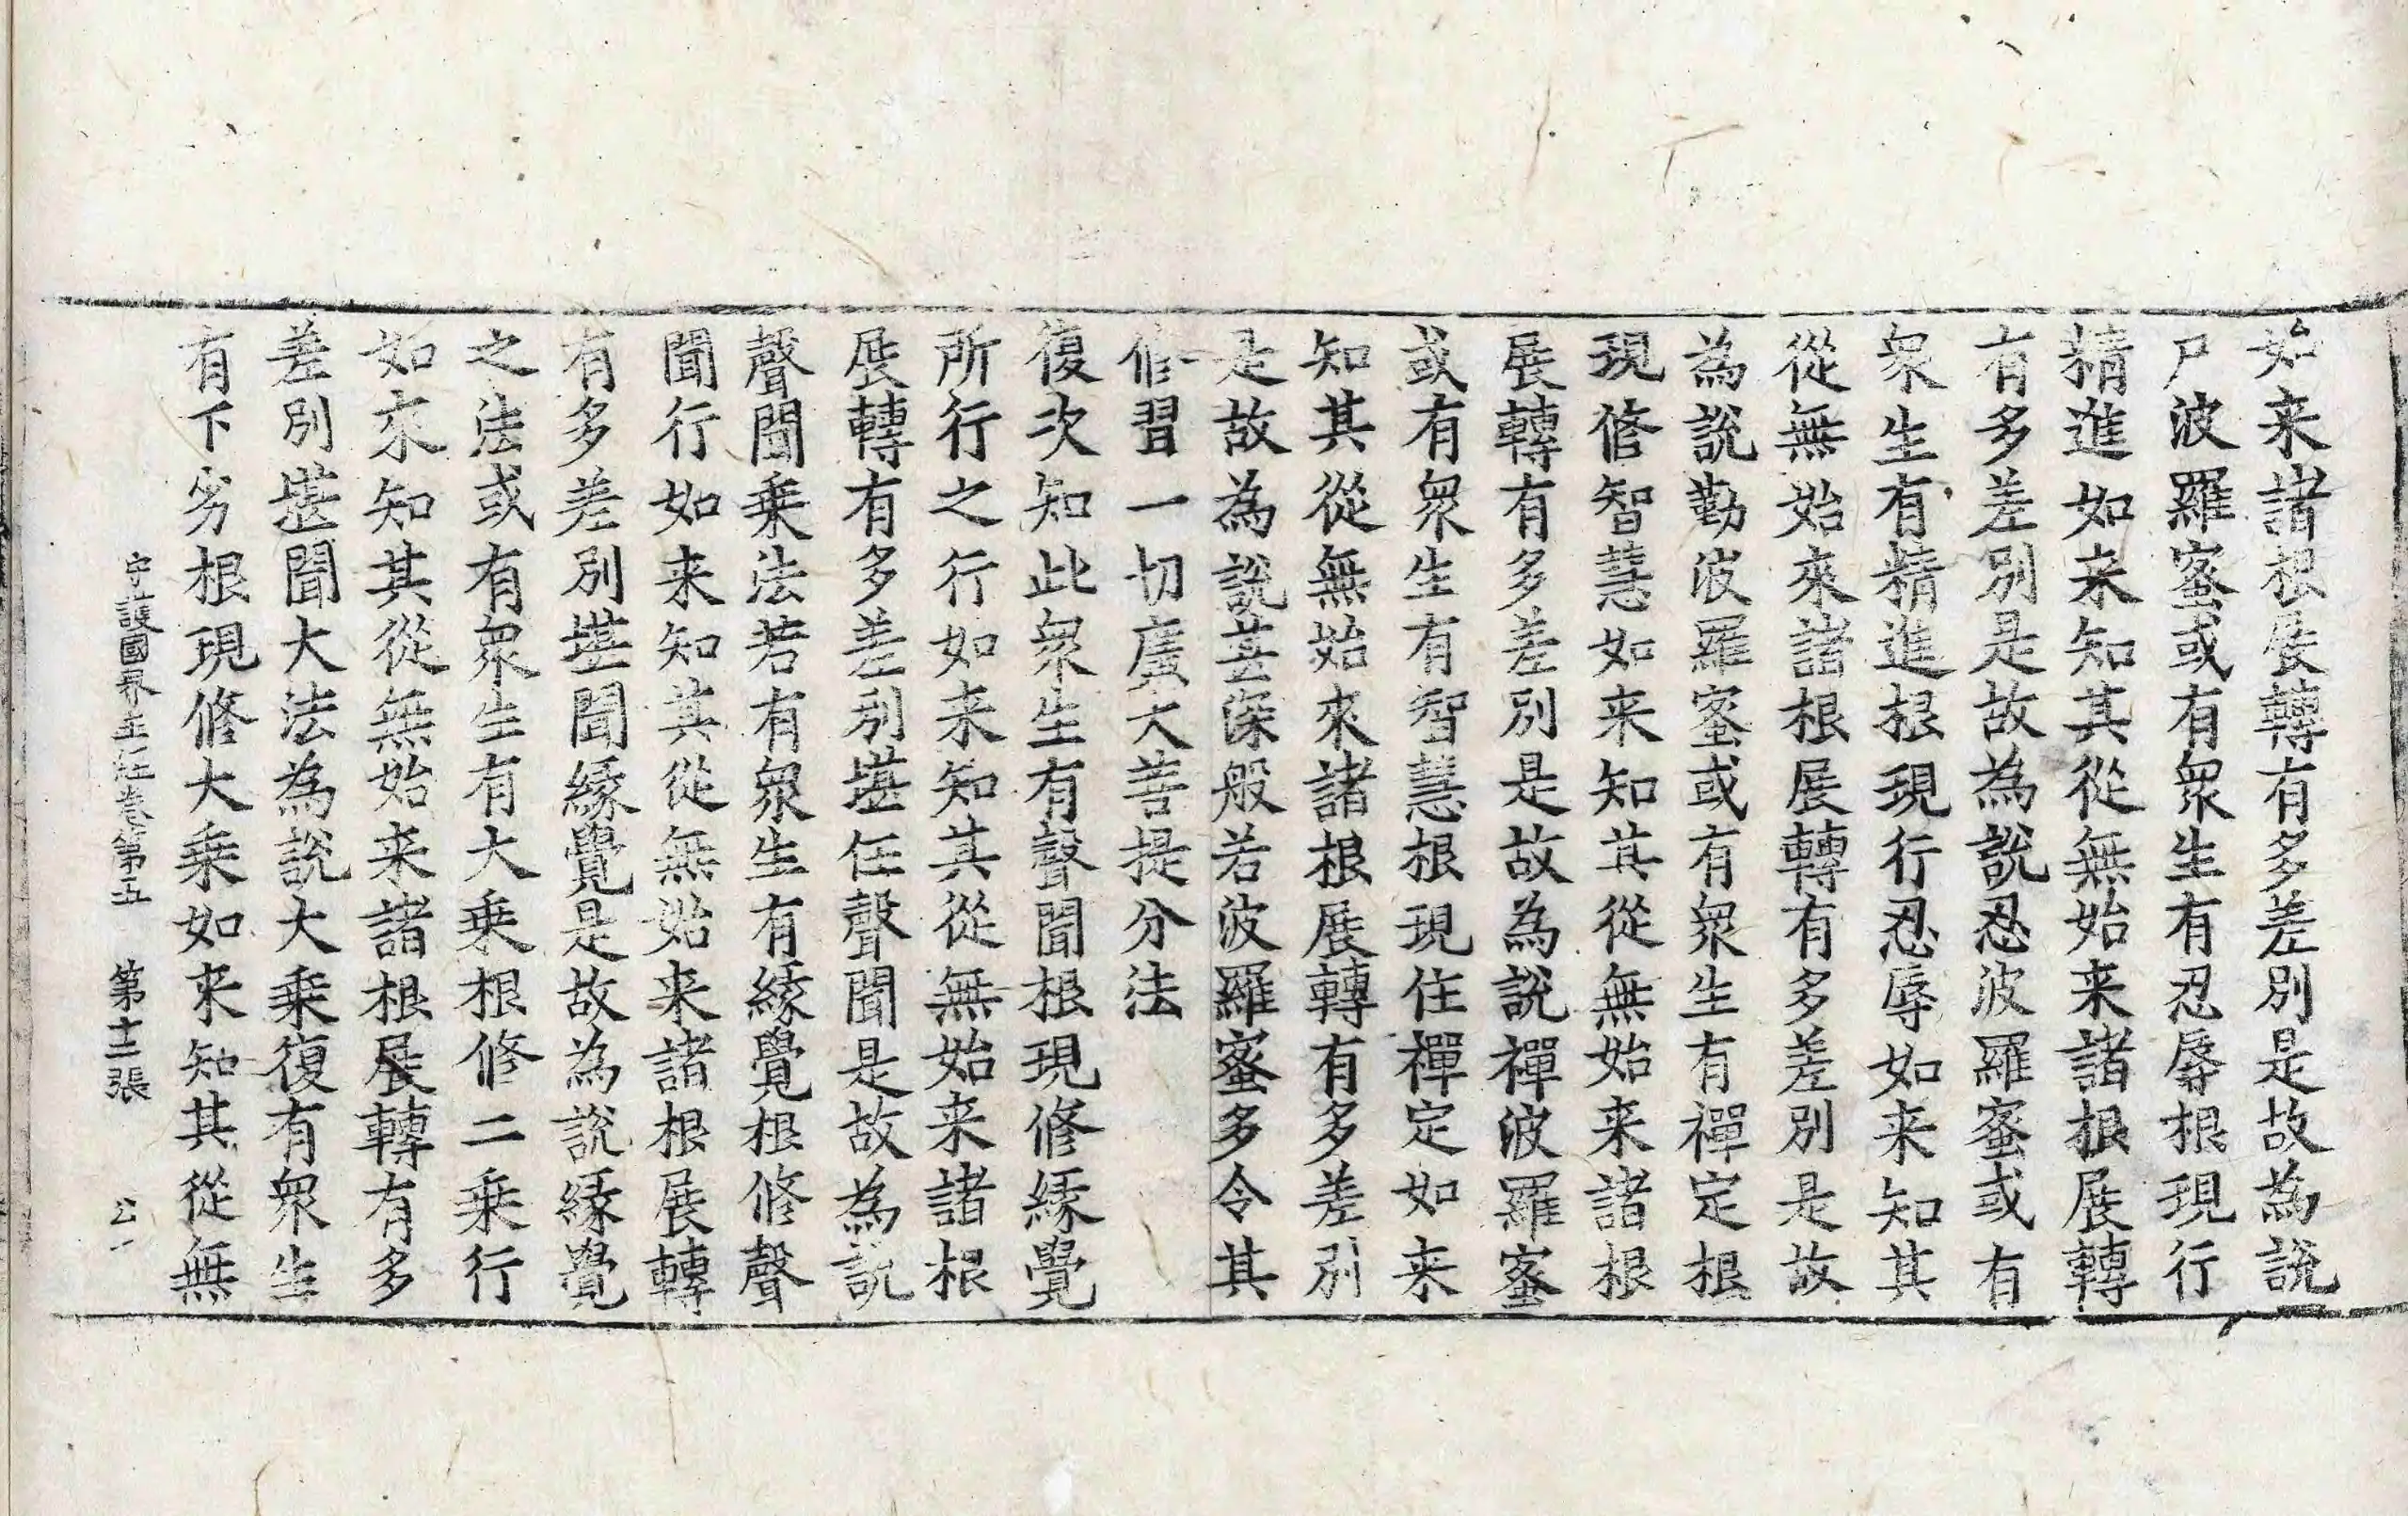 始来諸根展轉有多差別是故為說
尸波羅蜜或有衆生有忍辱根現行
精進如来知其從無始来諸根展轉
有多差別是故為說忍波羅蜜或有
衆生有精進根現行忍辱如来知其
從無始來諸根展轉有多差別是故
為說勤波羅蜜或有衆生有禪定根
現修智慧如来知其從無始来諸根
展轉有多差別是故為說禪波羅蜜
或有衆生有智慧根現住禪定如来
知其從無始來諸根展轉有多差別
是故為說甚深般若波羅蜜多令其
修習一切廣大菩提分法
復次知此衆生有聲聞根現修緣覺
所行之行如来知其從無始来諸根
展轉有多差別堪任聲聞是故為說
聲聞乗法若有衆生有緣覺根修聲
聞行如来知其從無始来諸根展轉
有多差別堪聞緣覺是故為說緣覺
之法或有衆生有大乗根修二乗行
如來知其從無始来諸根展轉有多
差別堪聞大法為說大乗復有衆生
有下劣根現修大乗如来知其從無
守護國界主経卷第五 第十二張